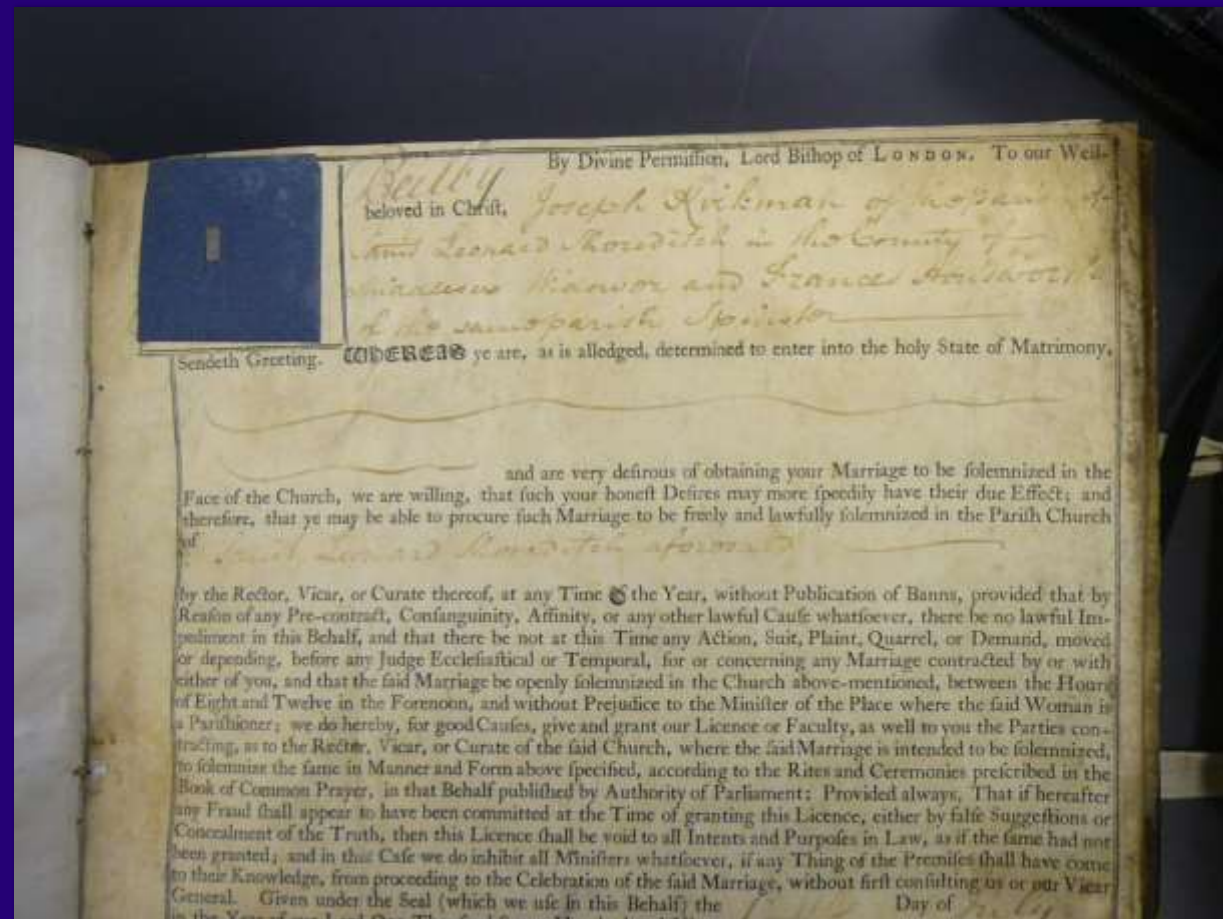 Beilby By Divine Permiſſion, Lord Biſhop of LONDON. To our Well-
beloved in Chriſt, Joseph Kirkman of the parish of
Saint Leonard Shoreditch in the County of
Middlesex Widower and Frances
of the same parish Spinster
Sendeth Greeting. WHEREAS ye are, as is alledged, determined to enter into the holy State of Matrimony,
and are very deſirous of obtaining your Marriage to be ſolemnized in the
Face of the Church, we are willing, that ſuch your honeſt Deſires may more ſpeedily have their due Effect; and
therefore, that ye may be able to procure ſuch Marriage to be freely and lawfully ſolemnized in the Pariſh Church
of Saint Leonard Shoreditch aforesaid
by the Rector, Vicar, or Curate thereof, at any Time of the Year, without Publication of Banns, provided that by
Reaſon of any Pre-contract, Conſanguinity, Affinity, or any other lawful Cauſe whatſoever, there be no lawful Im-
pediment in this Behalf, and that there be not at this Time any Action, Suit, Plaint, Quarrel, or Demand, moved
or depending, before any Judge Eccleſiaſtical or Temporal, for or concerning any Marriage contracted by or with
either of you, and that the ſaid Marriage be openly ſolemnized in the Church above-mentioned, between the Hours
of Eight and Twelve in the Forenoon, and without Prejudice to the Miniſter of the Place where the ſaid Woman is
a Pariſhioner; we do hereby, for good Cauſes, give and grant our Licence or Faculty, as well to you the Parties con-
tracting, as to the Rector, Vicar, or Curate of the ſaid Church, where the ſaid Marriage is intended to be ſolemnized,
to ſolemnize the ſame in Manner and Form above ſpecified, according to the Rites and Ceremonies preſcribed in the
Book of Common Prayer, in that Behalf publiſhed by Authority of Parliament: Provided always, That if hereafter
any Fraud ſhall appear to have been committed at the Time of granting this Licence, either by falſe Suggeſtions or
Concealment of the Truth, then this Licence ſhall be void to all Intents and Purpoſes in Law, as if the ſame had not
been granted; and in this Caſe we do inhibit all Miniſters whatſoever, if any Thing of the Premiſes ſhall have come
to their Knowledge, from proceeding to the Celebration of the ſaid Marriage, without firſt conſulting us or our Vicar
General. Given under the Seal (which we uſe in this Behalf) the Day of
in the Year of our Lord One Thouſand